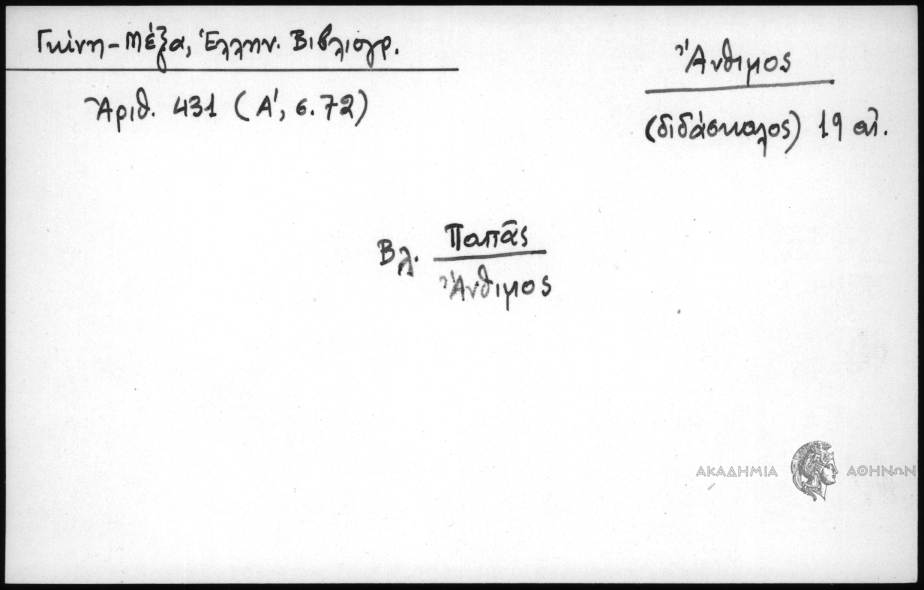 Γκίνη-Μέξα, Ἑλλην. Βιβλιογρ.
Ἀριθ. 431 (Α', σ. 72)
Ἄνθιμος
(διδάσκαλος) 19 αἰ.
Βλ. Παπᾶς
Ἄνθιμος
ΑΚΑΔΗΜΙΑ ΑΘΗΝΩΝ